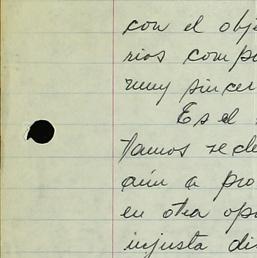 con el obj
rios comp
muy sincer
Es el
tamos recl
aún a pro
en otra op
injusta di